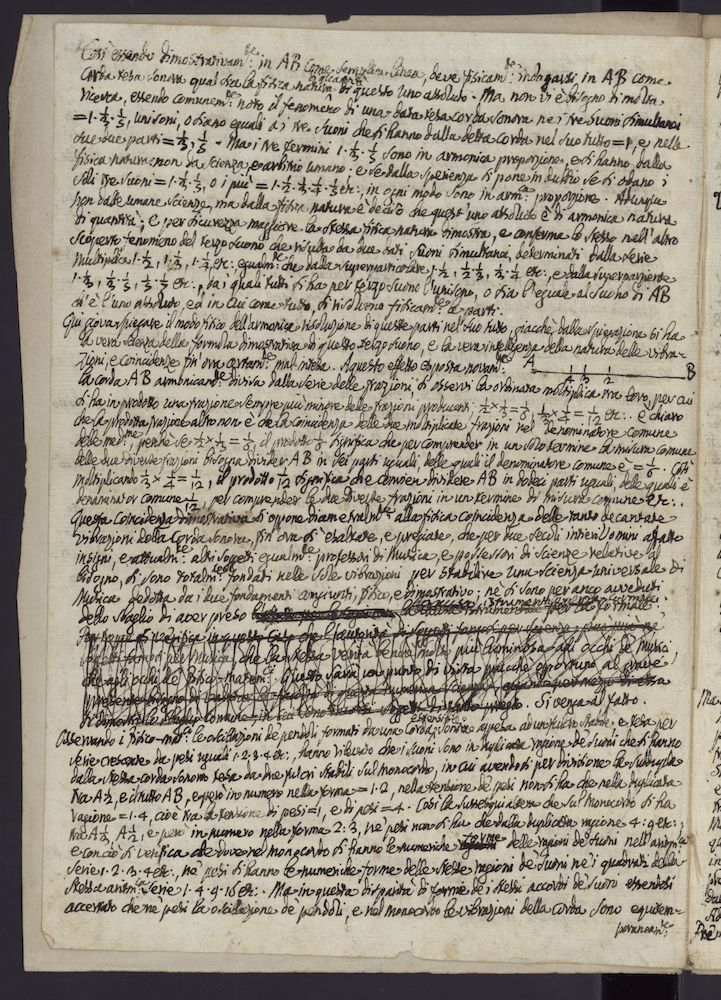 Così essendo dimostrativam:te in AB come semplice linea, deve fisicam:te indagarsi in AB come
corda tesa sonora qual sia la fisica natura di questo uno assoluto. Ma non vi è bisogno di molta
ricerca, essendo comunem:te noto il fenomeno di una data tesa corda sonora ne i tre suoni simultanei
= 1. 1/3. 1/5, unisoni, o siano eguali a i tre suoni che si hanno dalla detta corda nel suo tutto = 1, e nelle
sue due parti = 1/3, 1/5. Ma i tre termini 1. 1/3. 1/5 sono in armonica proporzione, e si hanno dalla
fisica natura: non da scienza, e arbitrio umano: e se dalla sperienza si pone in dubbio se si odano i
soli tre suoni = 1. 1/3. 1/5, o i più = 1. 1/2. 1/3. 1/4. 1/5 etc:, in ogni modo sono in arm:ca proporzione. Adunque
non dalle umane scienze, ma dalla fisica natura è deciso che quest'uno assoluto è di armonica natura
di quantità; e per sicurezza maggiore la stessa fisica natura dimostra, e conferma lo stesso nell'altro
scoperto fenomeno del terzo suono che risulta da due dati suoni simultanei, determinati dalla serie
multiplice 1. 1/2, 1. 1/3, 1. 1/4 etc:, egualm:te che dalla superparticolare 1. 1/2, 1/2. 1/3, 1/3. 1/4 etc:, e dalla superparziente
1. 1/3, 1/3. 1/5, 1/5. etc:, da i quali tutti si ha per terzo suono l'unisono, o sia l'eguale al suono di AB
ch'è l'uno assoluto, ed in cui come tutto, si risolvono fisicam:te le parti.
Qui giova spiegare il modo fisico dell'armonica risoluzione di queste parti nel suo tutto, giacchè dalla spiegazione si ha
la vera idea della formula dimostrativa di questo terzo suono, e la vera intelligenza della natura delle vibra-
zioni, e coincidenze fin'ora certam:te mal intesa. A questo effetto esposta novam:te A 1/4 1/3 1/2 B
la corda AB armonicam:te divisa dalla serie delle frazioni, si osservi la ordinata moltiplica tra loro, per cui
si ha in prodotto una frazione sempre più minore delle frazioni producenti; 1/2 × 1/3 = 1/6, 1/3 × 1/4 = 1/12 etc:. È chiaro
che la prodotta frazione altro non è che la coincidenza delle due moltiplicate frazioni nel denominatore comune
delle med:me, perchè se 1/2 × 1/3 = 1/6, il prodotto 1/6 significa che per comprender in un solo termine la misura comune
delle due diverse frazioni bisogna divider AB in sei parti uguali, delle quali il denominatore comune è = 1/6. Così
moltiplicando 1/3 × 1/4 = 1/12, il prodotto 1/12 significa che convien dividere AB in dodeci parti uguali, delle quali è
denominator comune 1/12, per comprender le due diverse frazioni in un termine di misura comune etc:.
Questa coincidenza dimostrativa si oppone diametralm:te alla fisica coincidenza delle tanto decantate
vibrazioni della corda sonora, fin'ora sì esaltate, e pregiate, che per due secoli intieri uomini affatto
insigni, e attualm:te altri soggetti egualm:te professori di Musica, e possessori di scienze relative al
bisogno, si sono totalm:te fondati nelle sole vibrazioni per stabilire una scienza universale di
Musica dedotta da i due fondamenti congiunti, fisico, e dimostrativo; nè si sono per anco avveduti
dello sbaglio di aver preso
per la formale;
che la stessa verità
più luminosa agli occhi de Musici,
che agli occhi de Fisico-matem:ci. Questo sarà un punto di vista
Si venga al fatto.
Osservando i fisico-mat:ci le oscillazioni de pendoli formati da una corda sonora appesa ad un fulcro stabile, e tesa per
serie crescente da pesi uguali 1. 2. 3. 4 etc:, hanno rilevato che i suoni sono in duplicata ragione de suoni che si hanno
dalla stessa corda sonora tesa da due fulcri stabili sul monocordo, in cui avendosi per divisione la suddupla
tra A 1/2, e il tutto AB, e però in numero nella forma = 1. 2, nella tensione de pesi non si ha che nella duplicata
ragione = 1. 4, cioè tra la tensione di pesi = 1, e di pesi = 4. Così la sussesquialtera che sul monocordo si ha
tra A 1/3, A 1/2, e però in numero nella forma 2. 3, ne' pesi non si ha che dalla duplicata ragione 4. 9 etc:,
e con ciò si verifica che dove nel monocordo si hanno le numeriche forme delle ragioni de suoni nell'aritm:ca
serie 1. 2. 3. 4 etc:, ne' pesi si hanno le numeriche forme delle stesse ragioni de suoni ne i quadrati della
stessa aritm:ca serie 1. 4. 9. 16 etc:. Ma in questa disparità di forme de i stessi accordi de suoni essendosi
accertato che ne' pesi la oscillazione de pendoli, e nel monocordo le vibrazioni della corda sono equitem-
poraneam:te